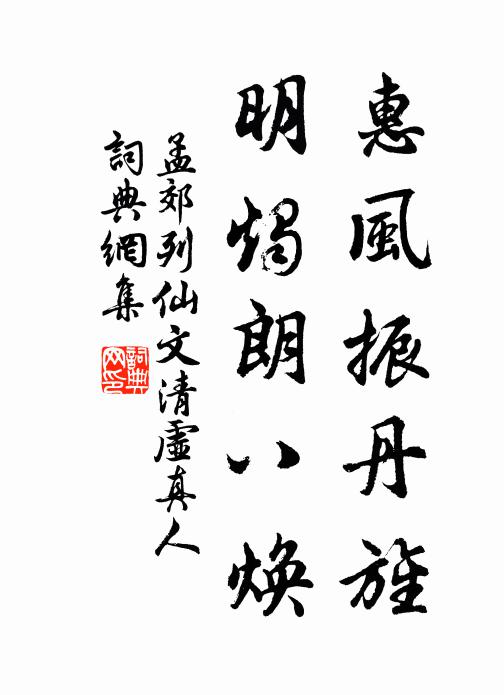 惠風振丹旌
明燭朗八煥
孟郊列仙文清虛真人
詞典網集
詞典網印